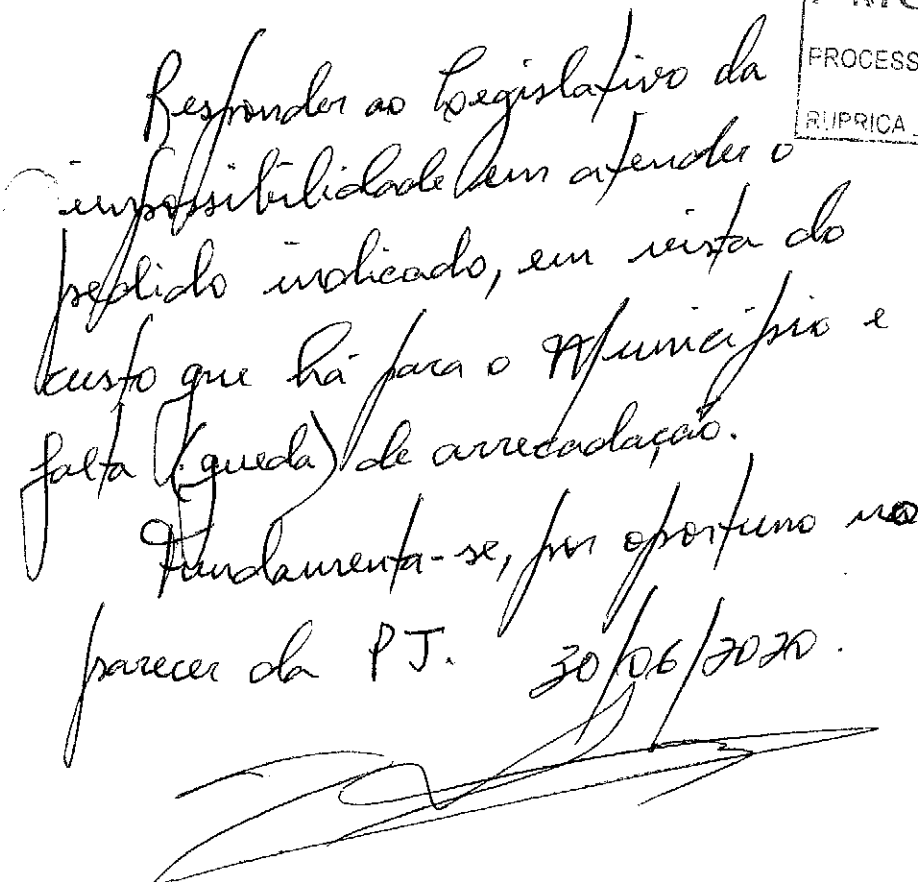 PROCESS
RUPRICA
Responder ao Legislativo da
impossibilidade em atender o
pedido indicado, em vista do
custo que há para o Município e
falta (queda) de arrecadação.
Fundamenta-se, por oportuno no
parecer da PJ. 30/06/2020.